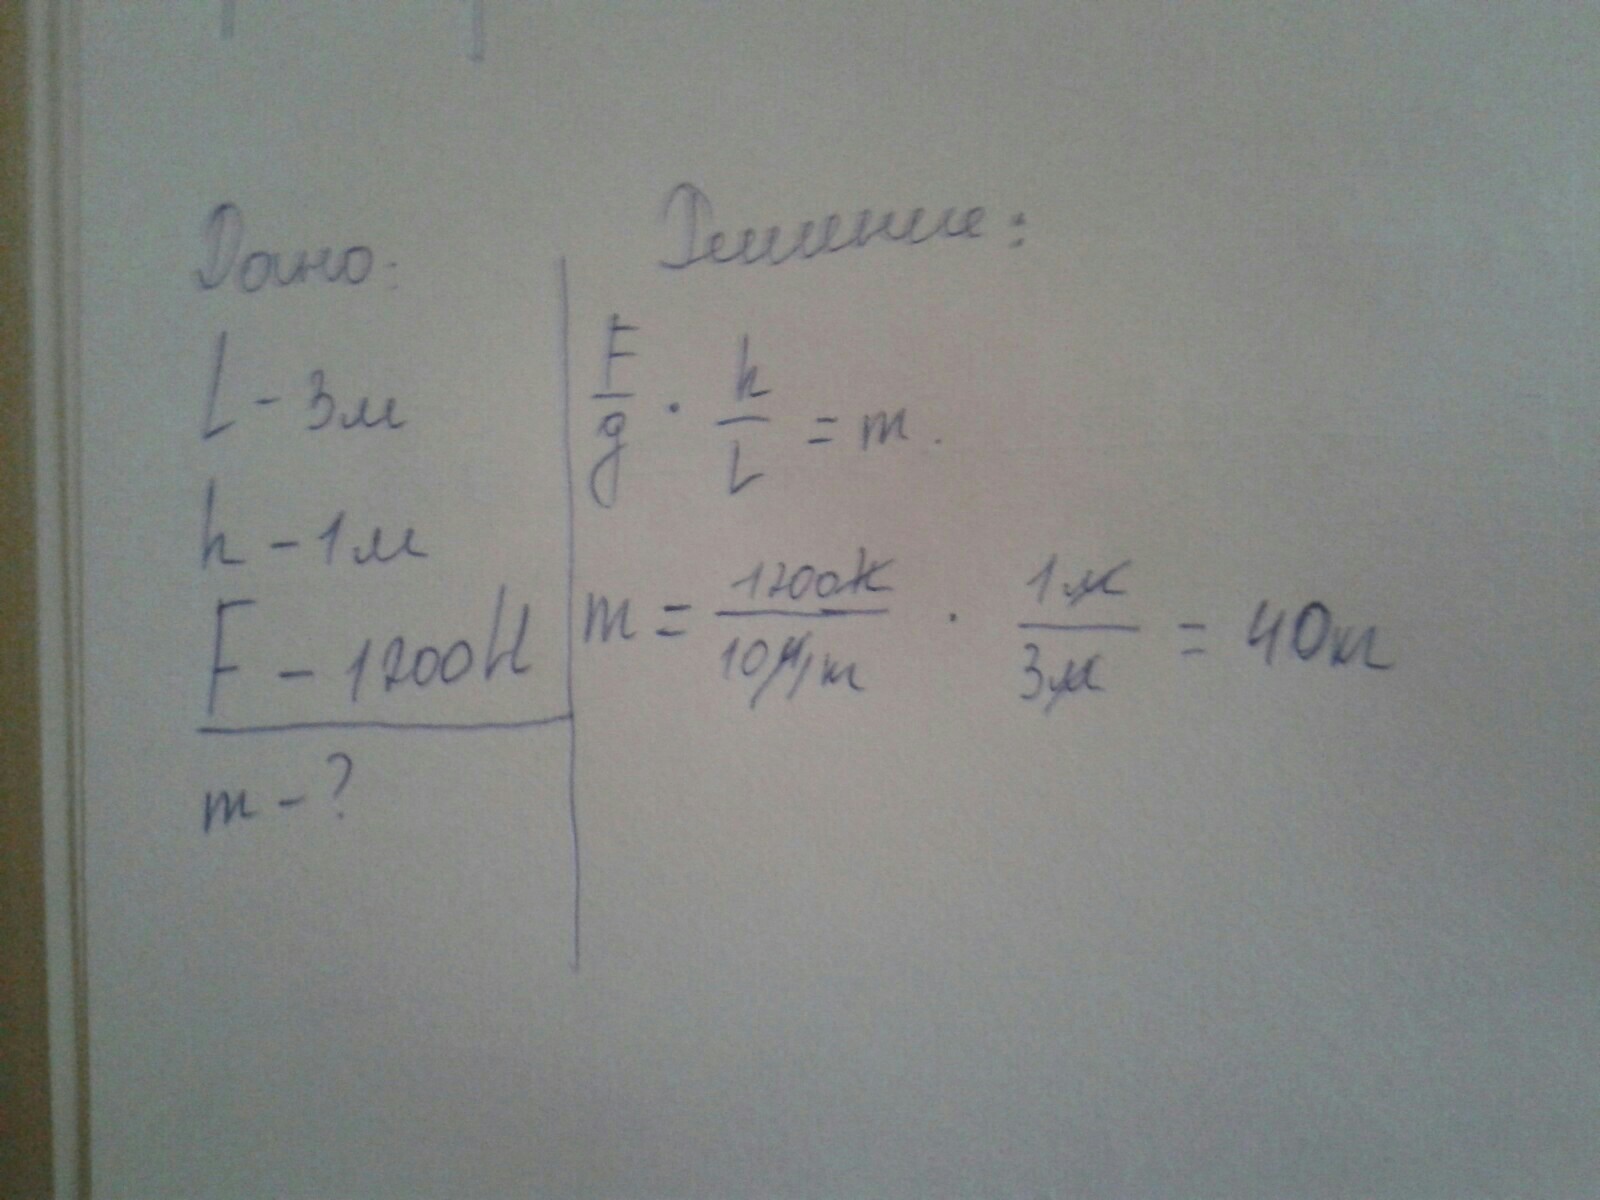 Дано:
L - 3м
h - 1м
F - 1200Н
m - ?
Решение:
F/g · h/L = m.
m = 1200Н/10Н/кг · 1м/3м = 40кг